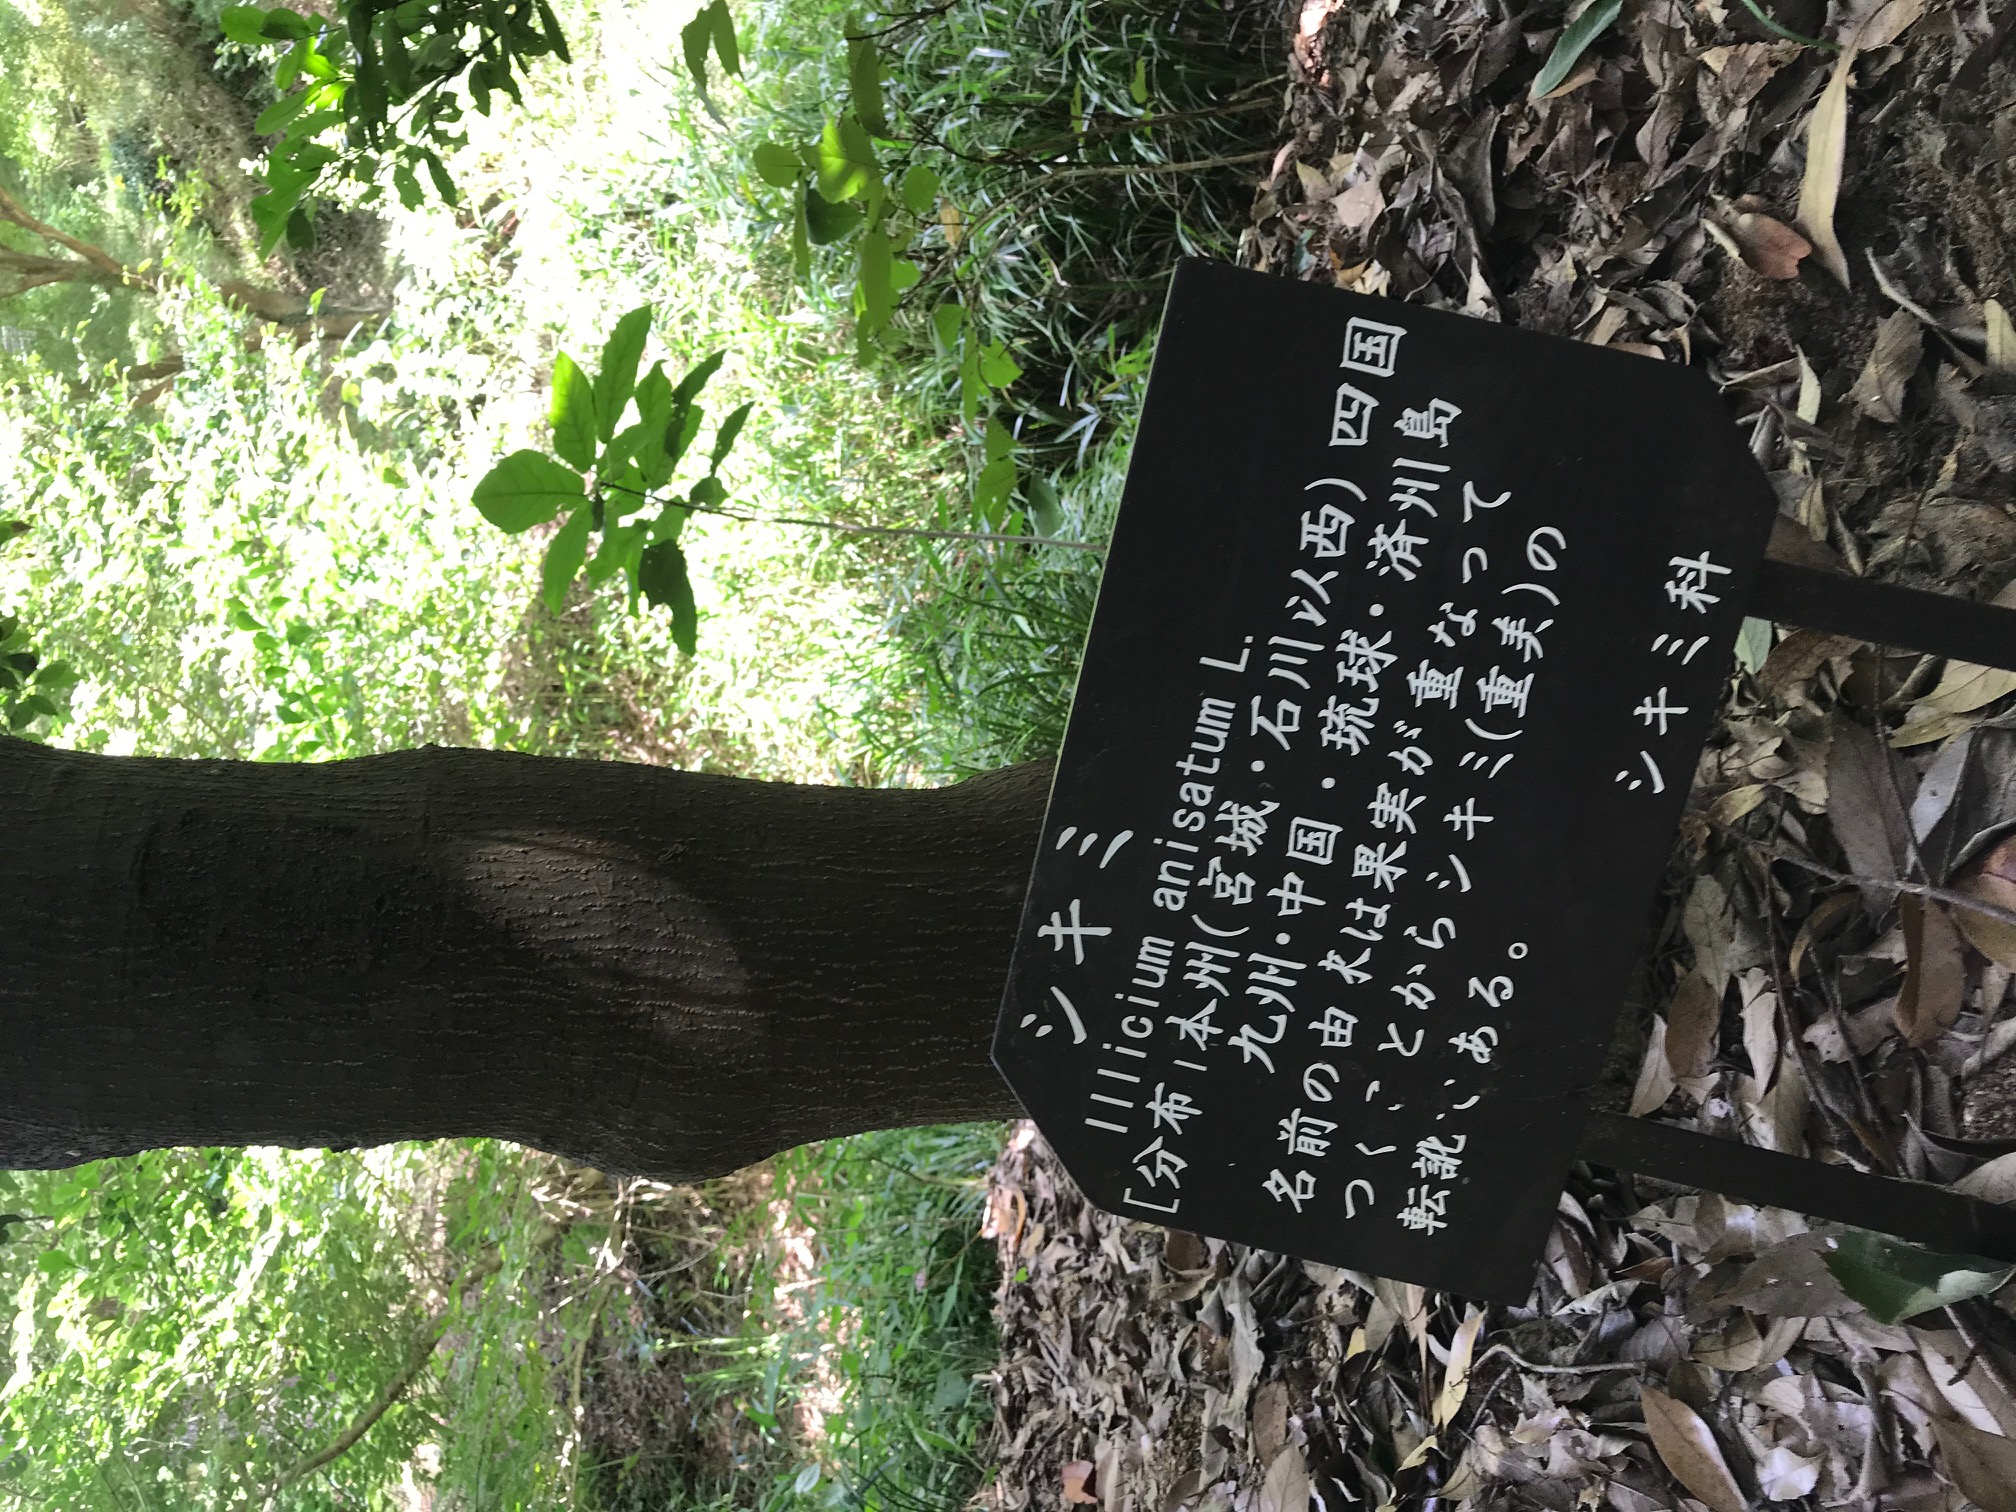 シキミ
Illicium anisatum L.
[分布]本州(宮城・石川以西)四国
九州・中国・琉球・済州島
名前の由来は果実が重なって
つくことからシキミ(重実)の
転訛である。
シキミ科